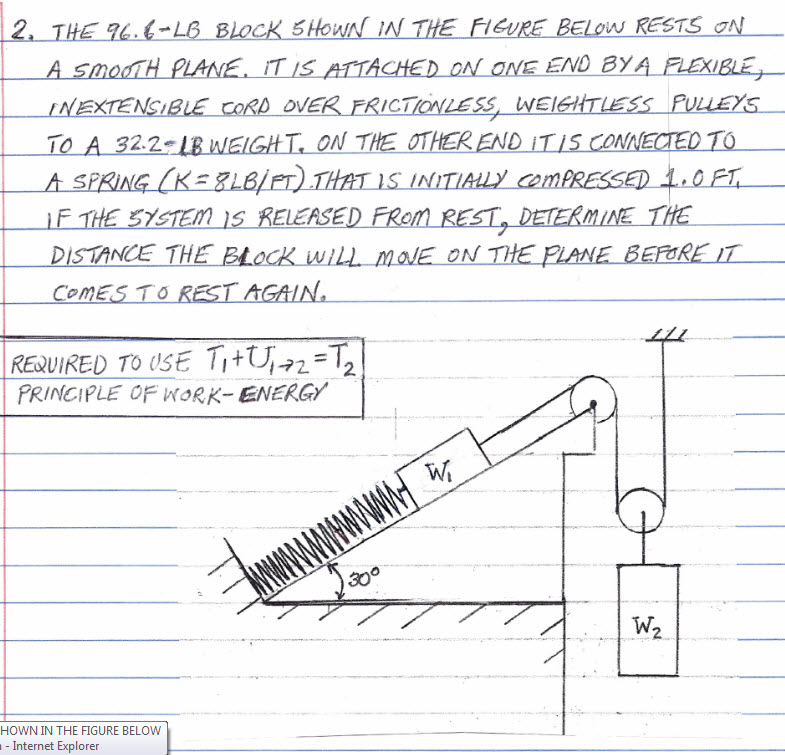 2. THE 96.6-LB BLOCK SHOWN IN THE FIGURE BELOW RESTS ON
A SMOOTH PLANE. IT IS ATTACHED ON ONE END BY A FLEXIBLE,
INEXTENSIBLE CORD OVER FRICTIONLESS, WEIGHTLESS PULLEYS
TO A 32.2-LB WEIGHT. ON THE OTHER END IT IS CONNECTED TO
A SPRING (K=8LB/FT) THAT IS INITIALLY COMPRESSED 1.0 FT.
IF THE SYSTEM IS RELEASED FROM REST, DETERMINE THE
DISTANCE THE BLOCK WILL MOVE ON THE PLANE BEFORE IT
COMES TO REST AGAIN.
REQUIRED TO USE T₁+U₁→₂=T₂
PRINCIPLE OF WORK-ENERGY
W₁
30°
W₂
HOWN IN THE FIGURE BELOW
- Internet Explorer